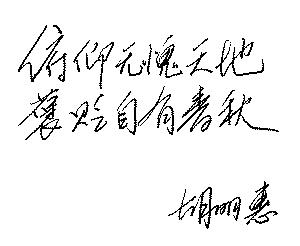 俯仰无愧天地
褒贬自有春秋
胡丽惠